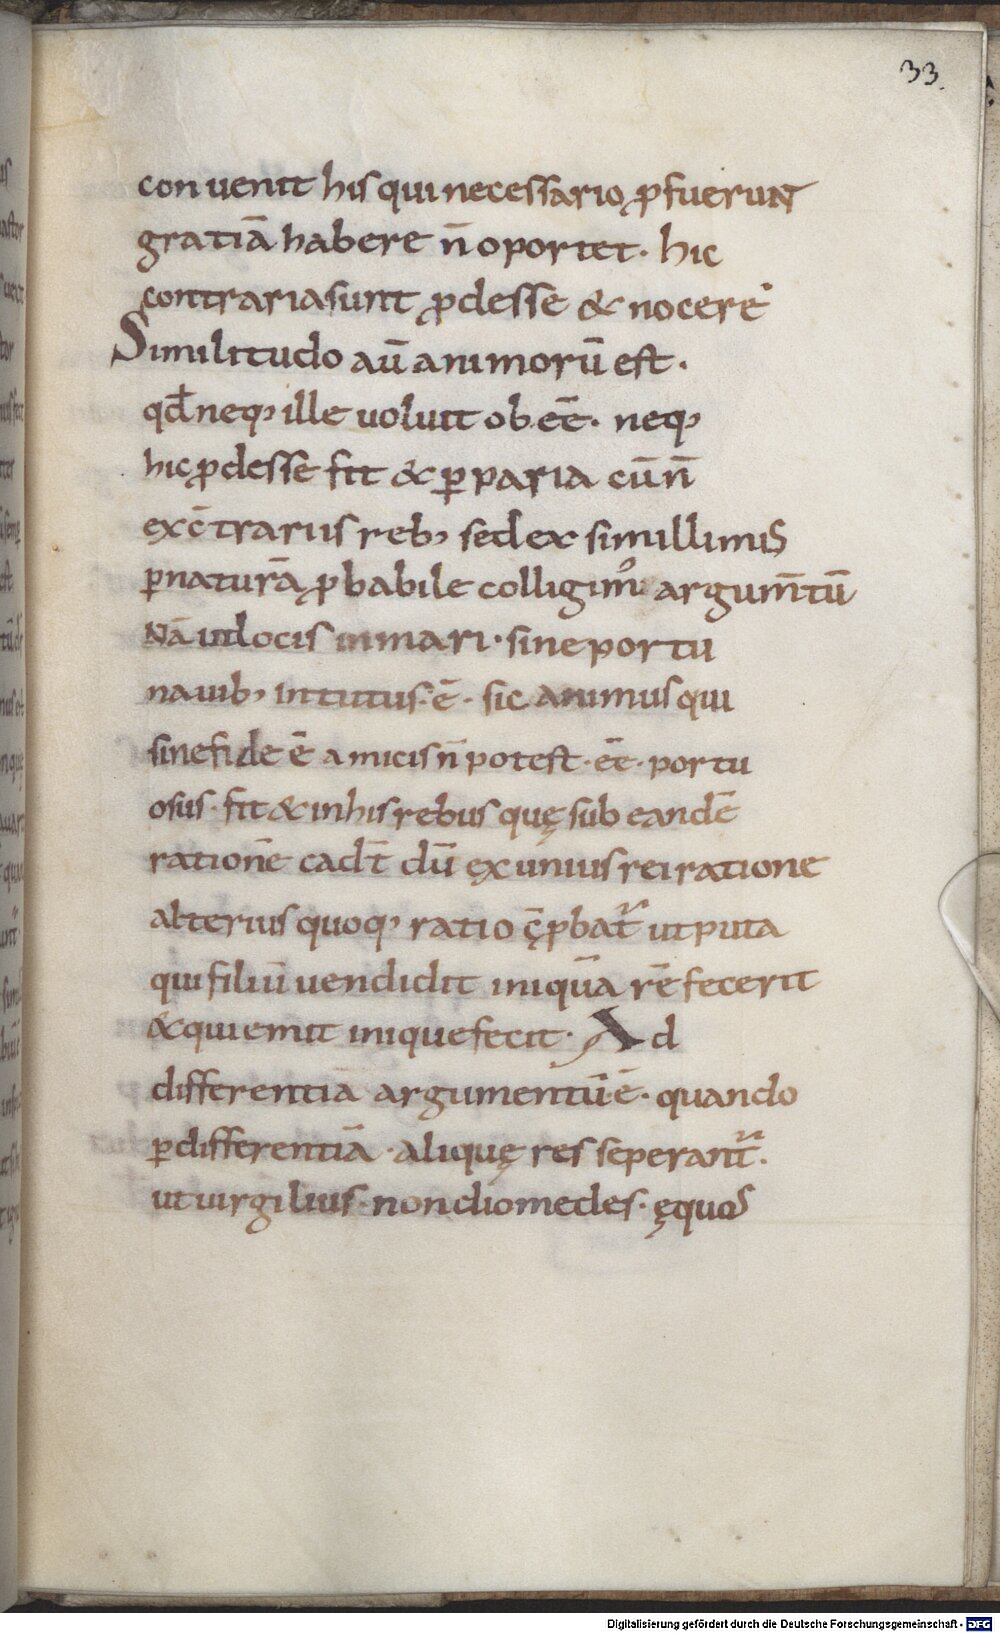 33.
conuenit his qui necessario ꝓfuerunt
gratiā habere n̄ oportet · hic
contraria sunt ꝓdesse & nocere
Similitudo aū animorū est ·
qđ neq; ille uoluit obeē̄ · neq;
hic ꝓdesse fit & ꝑ paria cū n̄
ex c̄trariis reb; sed ex simillimis
ꝑ naturā ꝓbabile colligimꝰ argum̄tū
Nā ut locis in mari · sine portu
nauib; intutus · ē · sic animus qui
sine fide ē amicis n̄ potest · eē · portu
osus · fit & in his rebus quę sub eandē
rationē cad̄t dū ex unius rei ratione
alterius quoq; ratio ꝓbat᷑ ut puta
qui filiū uendidit iniquā rē fecerit
& qui emit inique fecit · Ad
differentiā argumentū ē · quando
ꝑ differentiā · aliquę res seperant᷑ ·
ut uirgilius · non diomedes · ęquos
Digitalisierung gefördert durch die Deutsche Forschungsgemeinschaft - DFG